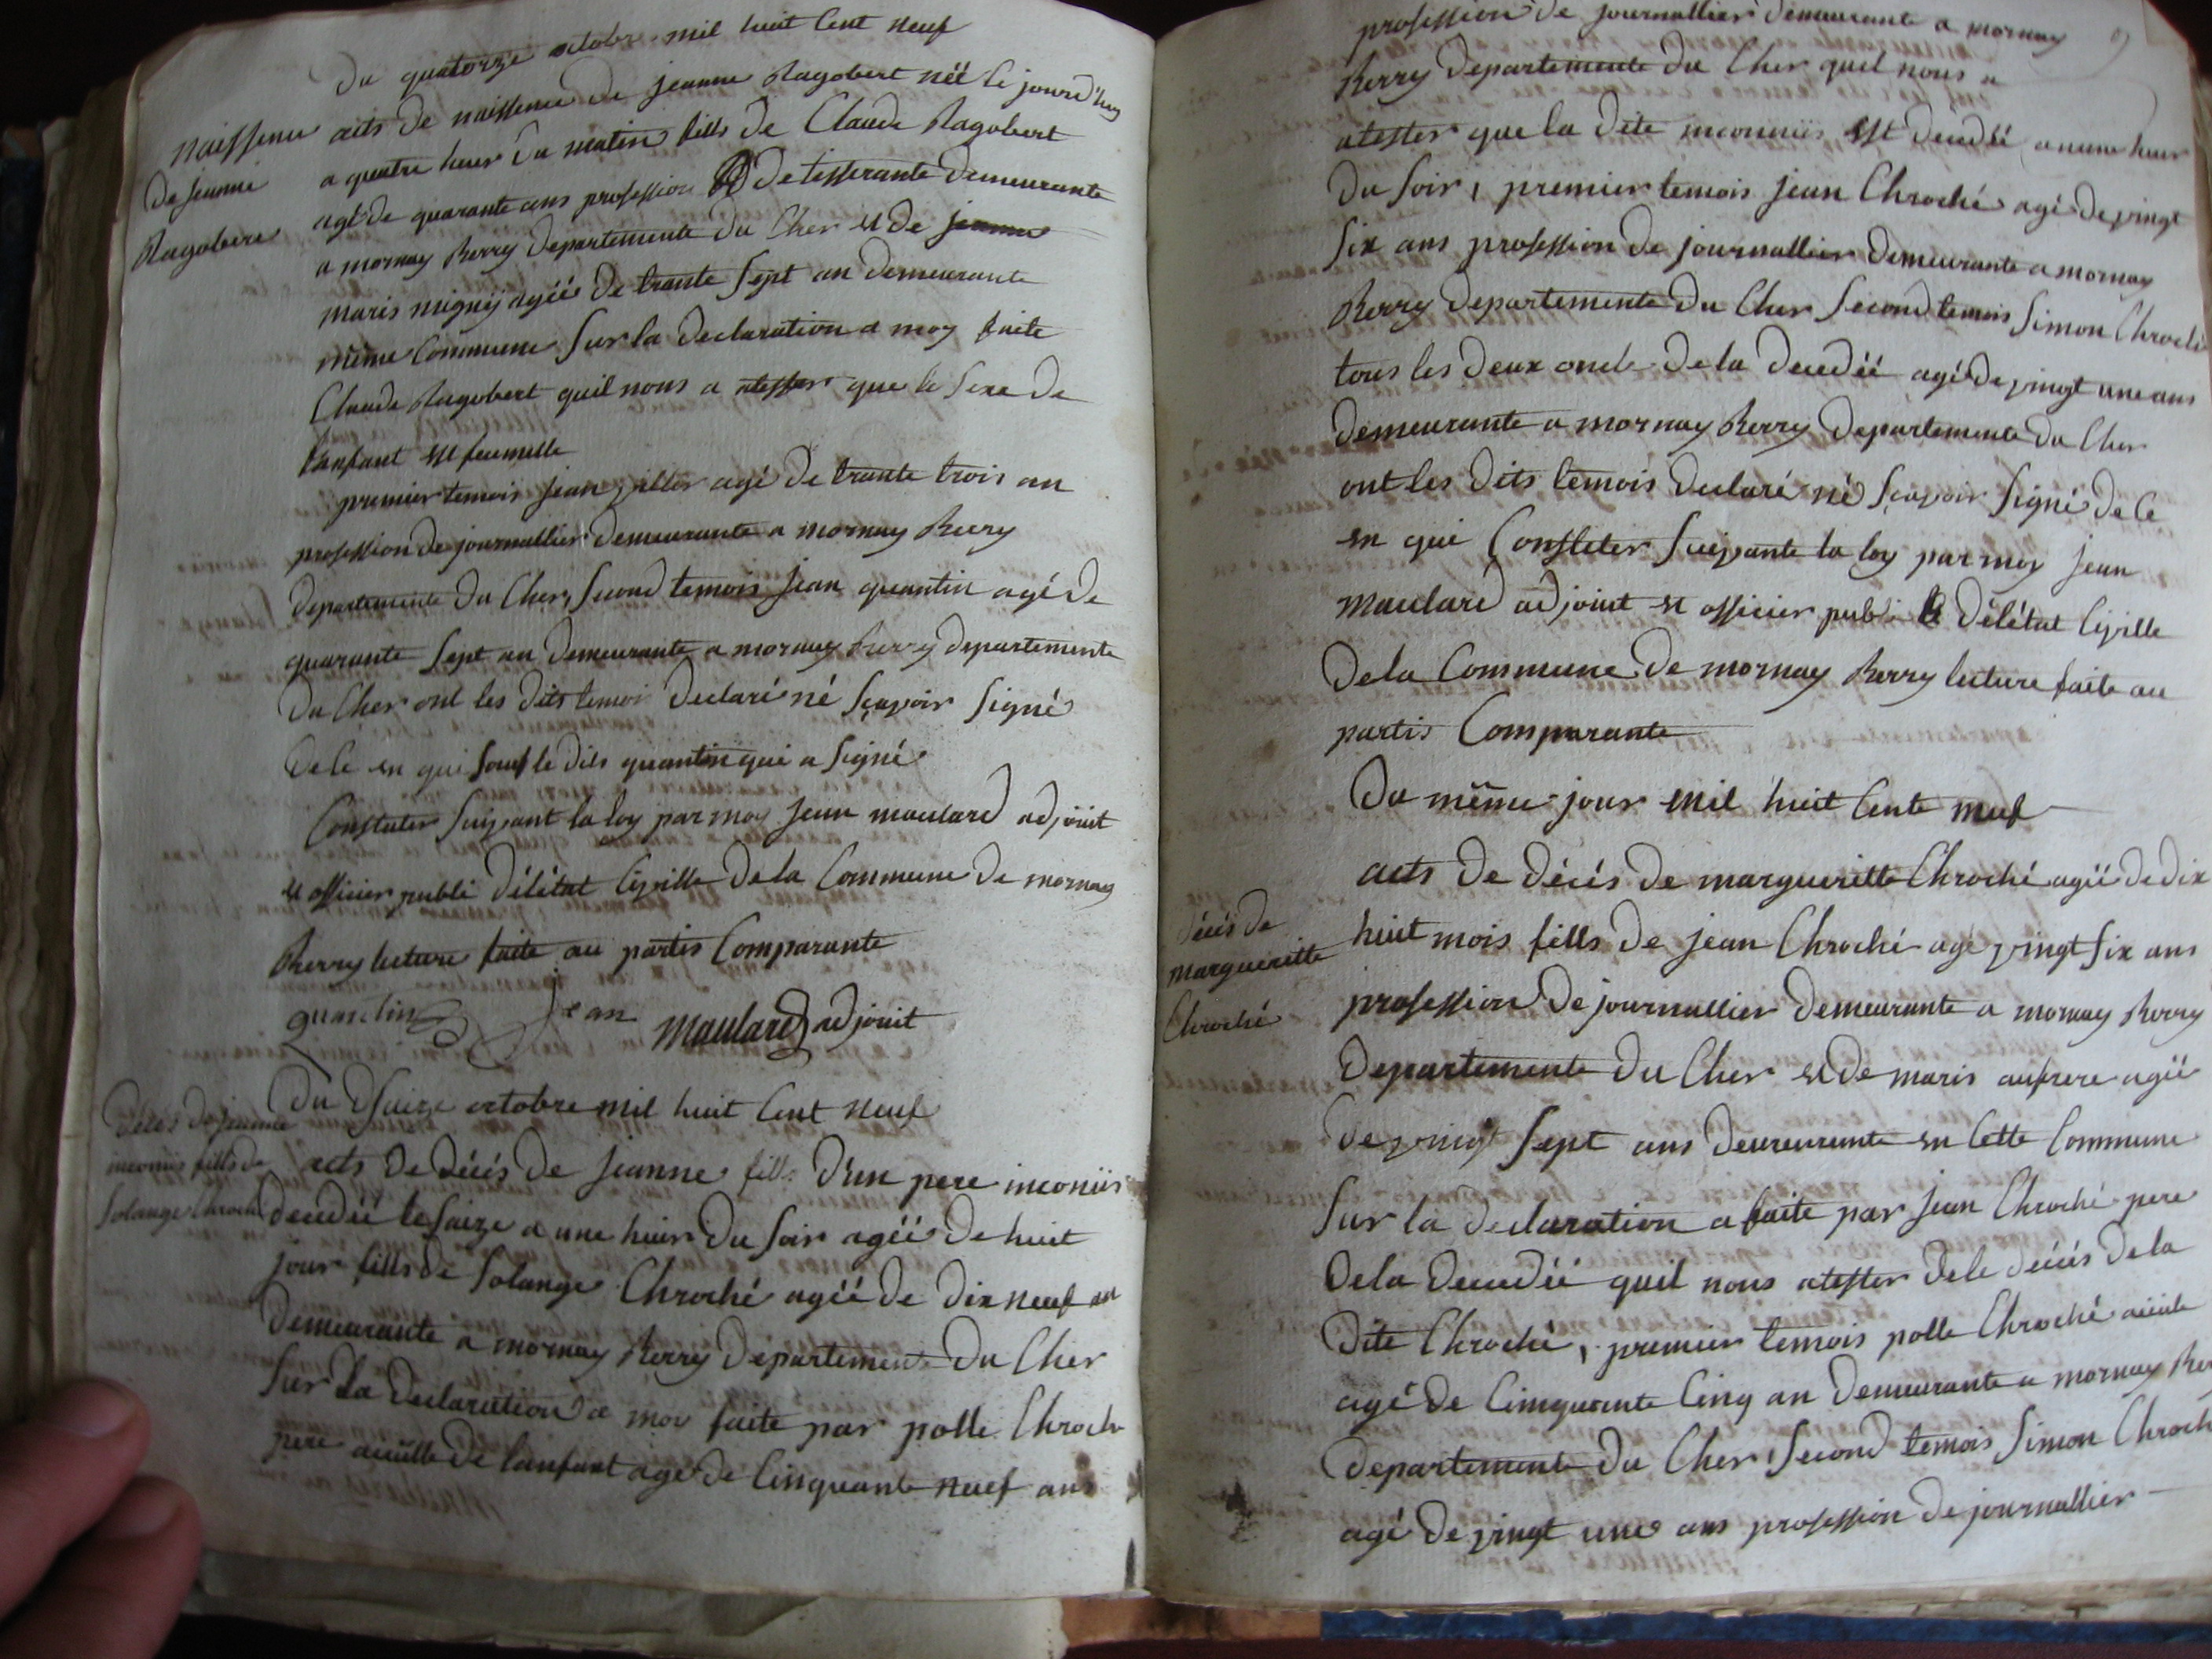 du quatorze octobre mil huit Cent neuf
naissence
de jeanne
Ragobere
acts de naissence de jeanne Ragobert néé le jourd'huy
a quatre heur du matin fills de Claude Ragobert
agé de quarante ans profession de tisserante demeurante
a mornay Berry departemente du Cher et de jeanne
maris migny agéé de trante sept an demeurante
même Commune sur la declaration a moy faite
Claude Ragobert quil nous a atester que le sexe de
l'anfant est feumelle
premier temois jean viller agé de trante trois an
profession de journallier demeurante a mornay Berry
departemente du Cher, second temois jean quantin agé de
quarante sept an demeurante a mornay Berry departemente
du Cher ont les dits temoi declaré né sçavoir signé
de ce en qui souf le dits quantin qui a signé
Constater suivant la loy par moy jean maulard adjoint
et officier publi délétat Civille de la Commune de mornay
Berry lecture faite au partis Comparante
quantin jean maulard adjoint
décés de jeanne
inconuis fills de
Solange Chroché
du saize octobre mil huit Cent neuf
acts de décés de jeanne fills d'un pere inconüis
decedéé le saize a une heur du soir agéé de huit
jour fills de Solange Chroché agéé de dix neuf an
demeurante a mornay Berry département du Cher
sur la declaration a moy faite par polle Chroch
pere aieulle de l'anfant agé de Cinquante neuf ans
profession de journallier demeurante a mornay
Berry departemente du Cher quil nous a
atester que la dite inconnuis est decedéé a une heur
du soir, premier temois jean Chroché agé de vingt
six ans profession de journallier demeurante a mornay
Berry departemente du Cher second temois Simon Chroché
tous les deux oncle de la decedéé agé de vingt une ans
demeurante a mornay Berry departemente du Cher
ont les dits temois declaré né sçavoir signé de ce
en qui Constater suivante la loy par moy jean
maulard adjoint et officier publi délétat Civille
de la Commune de mornay Berry lecture faite au
partis Comparante
du même jour mil huit Cente neuf
décés de
margueritte
Chroché
acts de décés de margueritte Chroché agéé de dix
huit mois fills de jean Chroché agé vingt six ans
profession de journallier demeurante a mornay Berry
departemente du Cher et de maris aufrere agéé
de vingt sept ans demeurante en Cette Commune
sur la declaration a faite par jean Chroché pere
de la decedéé quil nous atester de le décés de la
dite Chroché, premier temois polle Chroché aieule
agé de Cinquante Cinq an demeurante a mornay Ber
departemente du Cher, second temois Simon Chroch
agé de vingt une ans profession de journallier